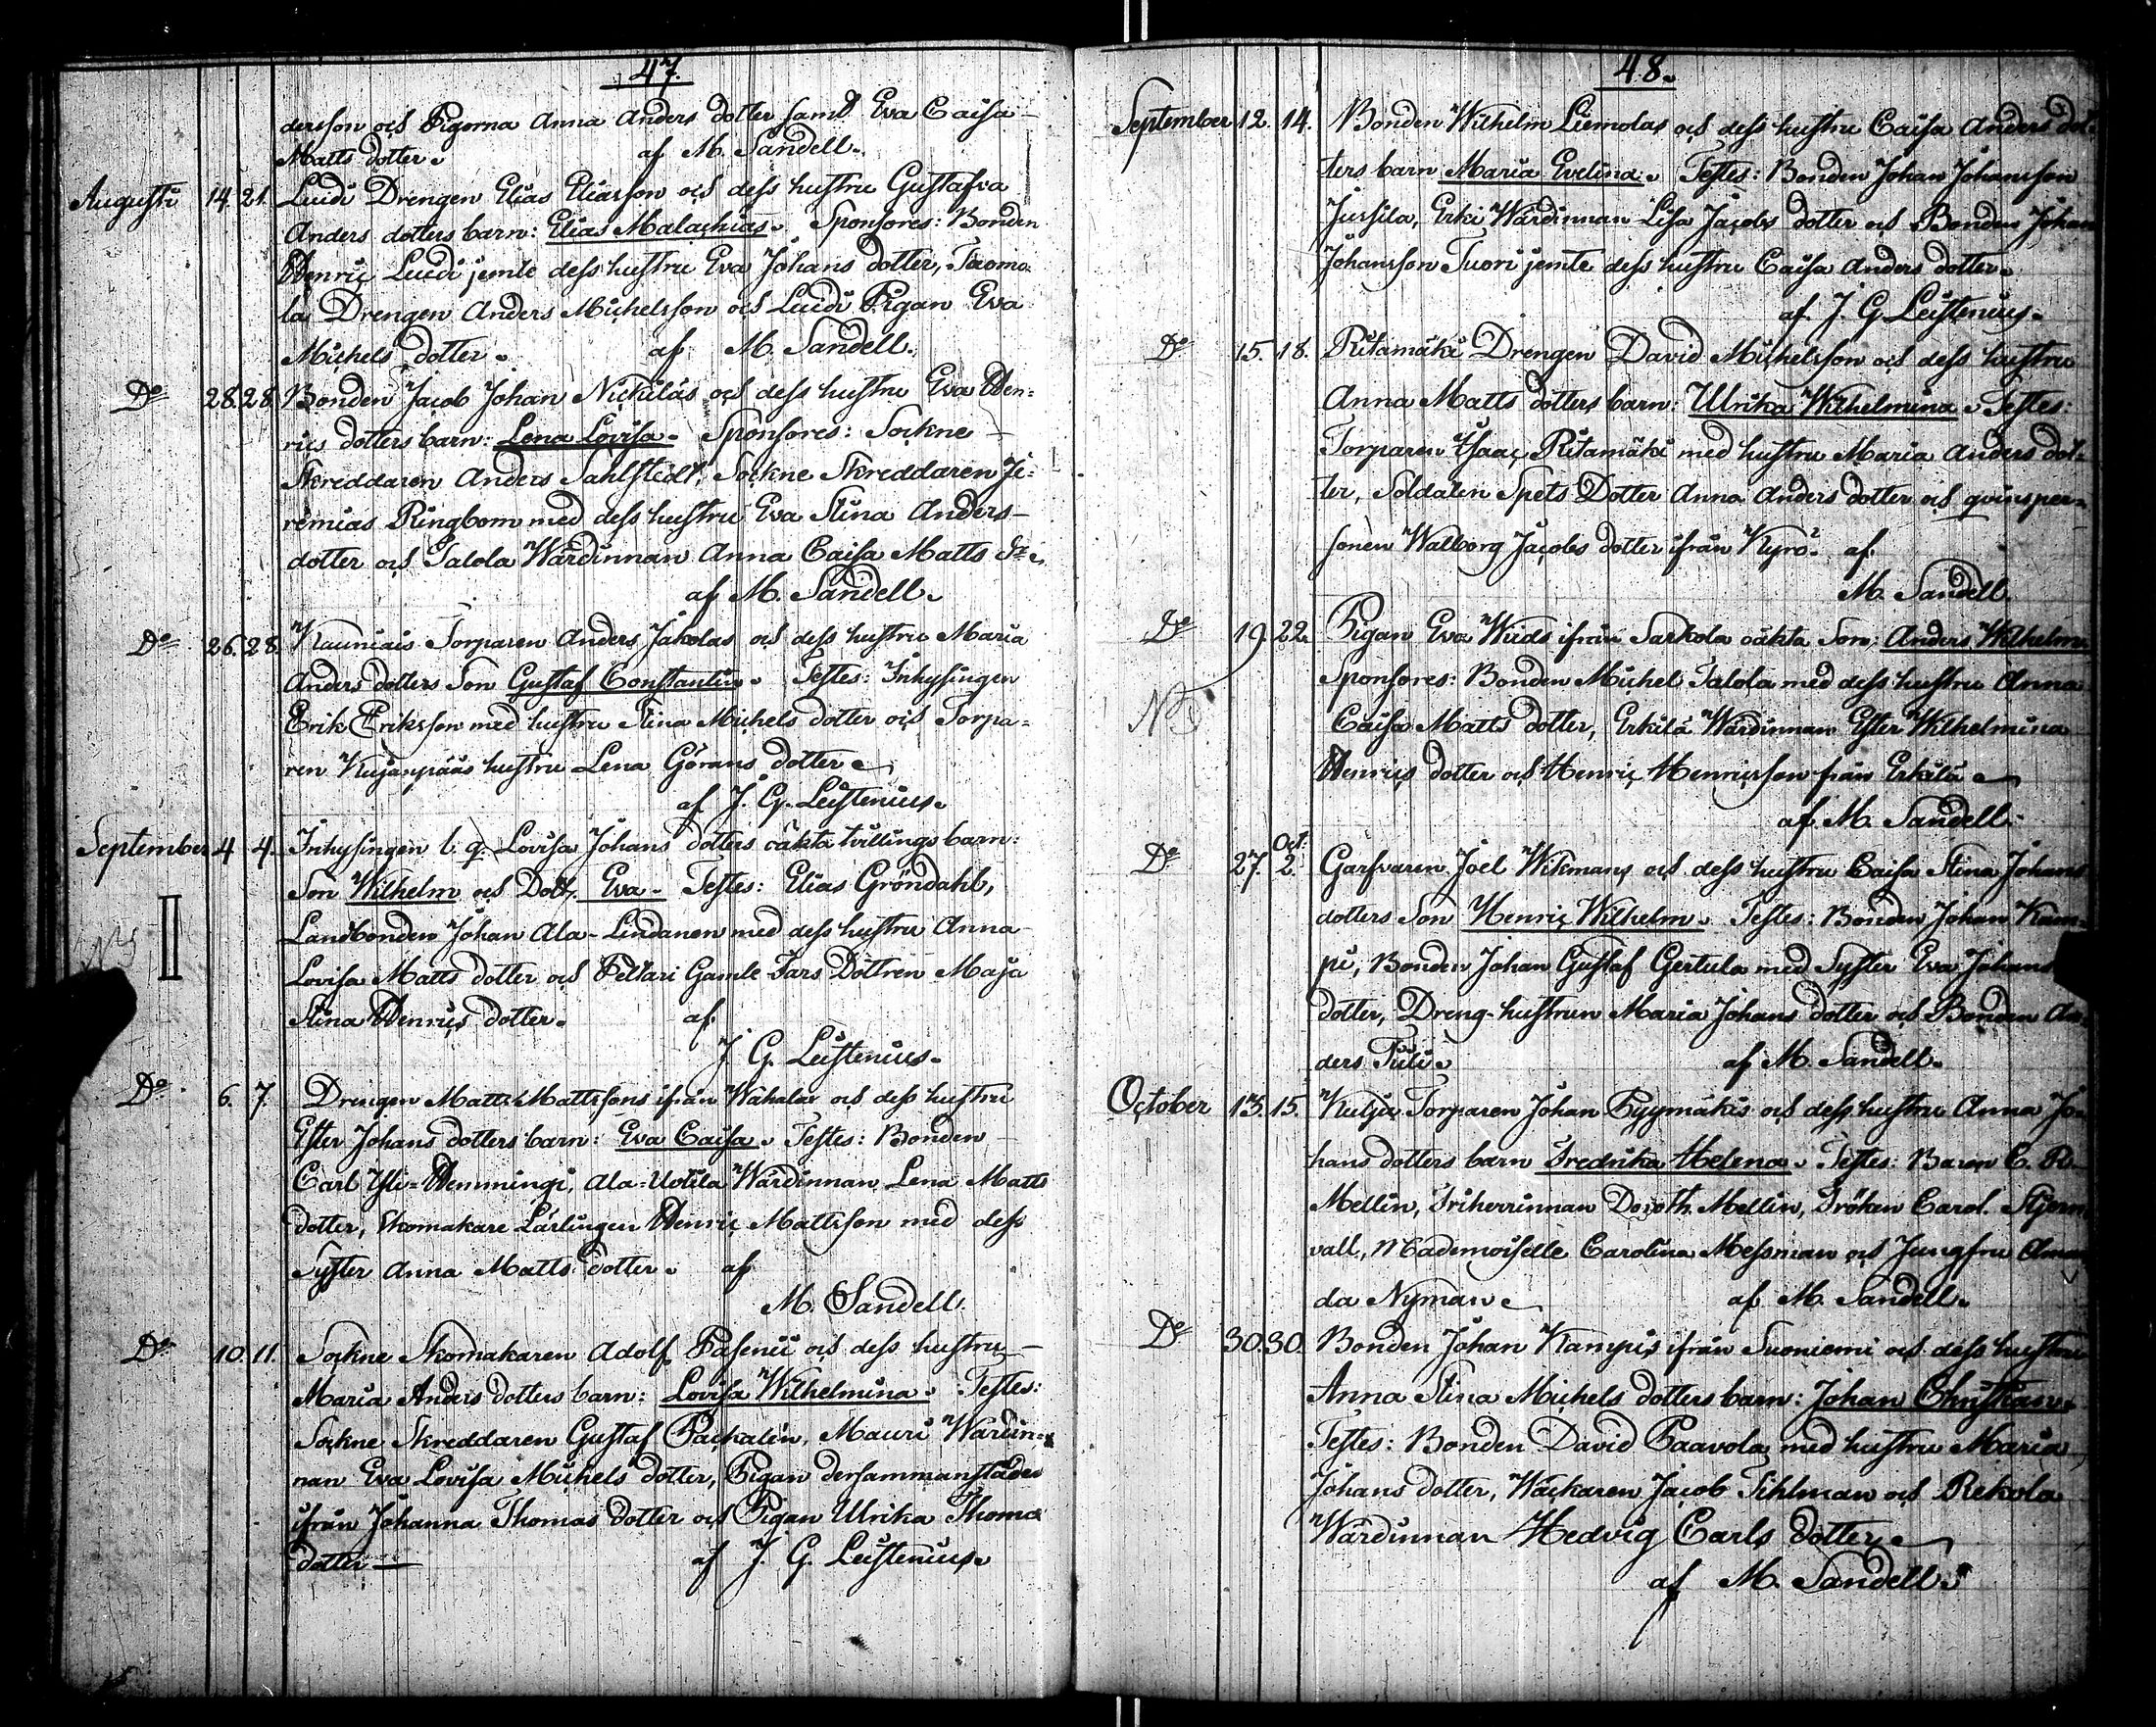 47.
dersson och Pigorna Anna Anders dotter samt Eva Caisa
Matts dotter. af M. Sandell.
Augusti 14. 21. Luidi Drengen Elias Eliasson och dess hustru Gustafva
Anders dotters barn: Elias Malachias. Sponsores: Bonden
Henric Luidi jemte dess hustru Eva Johans dotter, Tuomo-
la Drengen Anders Michelsson och Luidi Pigan Eva
Michels dotter. af M. Sandell.
Do 28. 28. Bonden Jacob Johan Nickiläs och dess hustru Eva Hen-
rics dotters barn: Lena Lovisa. Sponsores: Sockne
Skreddaren Anders Sahlstedt, Sockne Skreddaren Je-
remias Ringbom med dess hustru Eva Stina Anders-
dotter och Talola Wärdinnan Anna Caisa Matts dr.
af M. Sandell.
Do 26. 28. Kauniais Torparen Anders Jakolas och dess hustru Maria
Anders dotters Son Gustaf Constantin. Testes: Inhysingen
Erik Eriksson med hustru Stina Michels dotter och Torpa-
ren Kujanpääs hustru Lena Görans dotter
af J. G. Leistenius.
September 4 4. Inhysingen l. q. Lovisa Johans dotters oäkta tvillings barn:
Son Wilhelm och Dott. Eva. Testes: Elias Gröndahl,
II Landbonden Johan Ala-Lindanen med dess hustru Anna
Lovisa Matts dotter och Pettari Gamle Fars Dottren Maja
Stina Henrics dotter. af
J. G. Leistenius.
Do 6. 7. Drengen Matts Mattssons ifrån Wähalar och dess hustru
Ester Johans dotters barn: Eva Caisa. Testes: Bonden
Carl Yli-Hemmingi, Ala-Uotila Wärdinnan Lena Matts
dotter, Skomakare Lärlingen Henric Mattsson med dess
Syster Anna Matts dotter. af
M. Sandell.
Do 10. 11. Sockne Skomakaren Adolf Pasenii och dess hustru
Maria Anders dotters barn: Lovisa Wilhelmina. Testes:
Sockne Skreddaren Gustaf Packalén, Mauri Wärdin-
nan Eva Lovisa Michels dotter, Pigan dersammanstädes
ifrån Johanna Thomas dotter och Pigan Ulrika Thomas
dotter af J. G. Leistenius.
48.
September 12. 14. Bonden Wilhelm Liemolas och dess hustru Caisa Anders dot-
ters barn Maria Evelina. Testes: Bonden Johan Johansson
Jussila, Erki Wärdinnan Lisa Jacobs dotter och Bonden Johan
Johansson Tuori jemte dess hustru Caisa Anders dotter.
af J. G. Leistenius.
Do 15. 18. Ritamäki Drengen David Michelsson och dess hustru
Anna Matts dotters barn: Ulrika Wilhelmina. Testes:
Torparen Isaac Ritamäki med hustru Maria Anders dot-
ter, Soldaten Spets Dotter Anna Anders dotter och qvinsper-
sonen Walborg Jacobs dotter ifrån Kyro. af
M. Sandell.
Do 19. 22. Pigan Eva Wids ifrån Sarkola oäkta Son: Anders Wilhelm.
Sponsores: Bonden Michel Talola med dess hustru Anna
NB Caisa Matts dotter, Erkilä Wärdinnan Ester Wilhelmina
Henrics dotter och Henric Henricsson från Erkilä
af M. Sandell.
Do 27. Oct. 2. Garfvaren Joel Wikmans och dess hustru Caisa Stina Johans
dotters Son Henric Wilhelm. Testes: Bonden Johan Kam-
pi, Bonden Johan Gustaf Gertula med Syster Eva Johans
dotter, Dreng-hustrun Maria Johans dotter och Bonden An-
ders Tuli. af M. Sandell.
October 13. 15. Kulju Torparen Johan Pyymäkis och dess hustru Anna Jo-
hans dotters barn Fredrika Helena. Testes: Baron C. R.
Mellin, Friherrinnan Doroth. Mellin, Fröken Carol. Stjern-
vall, Mademoiselle Carolina Messman och Jungfru Aman-
da Nyman. af M. Sandell.
Do 30. 30. Bonden Johan Kampis ifrån Suoniemi och dess hustru
Anna Stina Michels dotters barn: Johan Christian.
Testes: Bonden David Paavola med hustru Maria
Johans dotter, Wäckaren Jacob Tihlman och Rekola
Wärdinnan Hedvig Carls dotter
af M. Sandell.